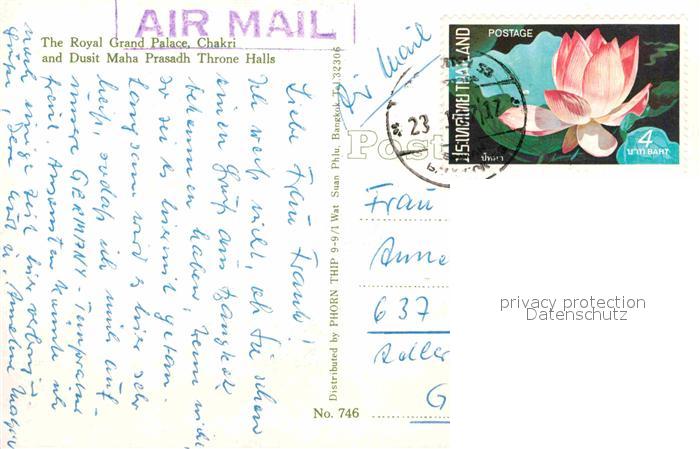 AIR MAIL
The Royal Grand Palace, Chakri
and Dusit Maha Prasadh Throne Halls
Liebe Frau Frank!
Ich weiß nicht, ob Sie schon
einen Gruß aus Bangkok
bekommen haben, wenn nicht
so sei es hiermit getan.
Langsam wird es hier sehr
heiß, sodaß ich mich auf
GERMANY-Temperatur
freue. Ansonsten könnte ich
noch einige Zeit hier verbringen
Distributed by PHORN THIP 9-9/1 Wat Suan Phlu, Bangkok. Tel. 32306
No. 746
Air Mail
Post
Frau
Anne
637
G
POSTAGE
ประเทศไทย THAILAND
ปทุมา
4
บาท BAHT
23
privacy protection
Datenschutz